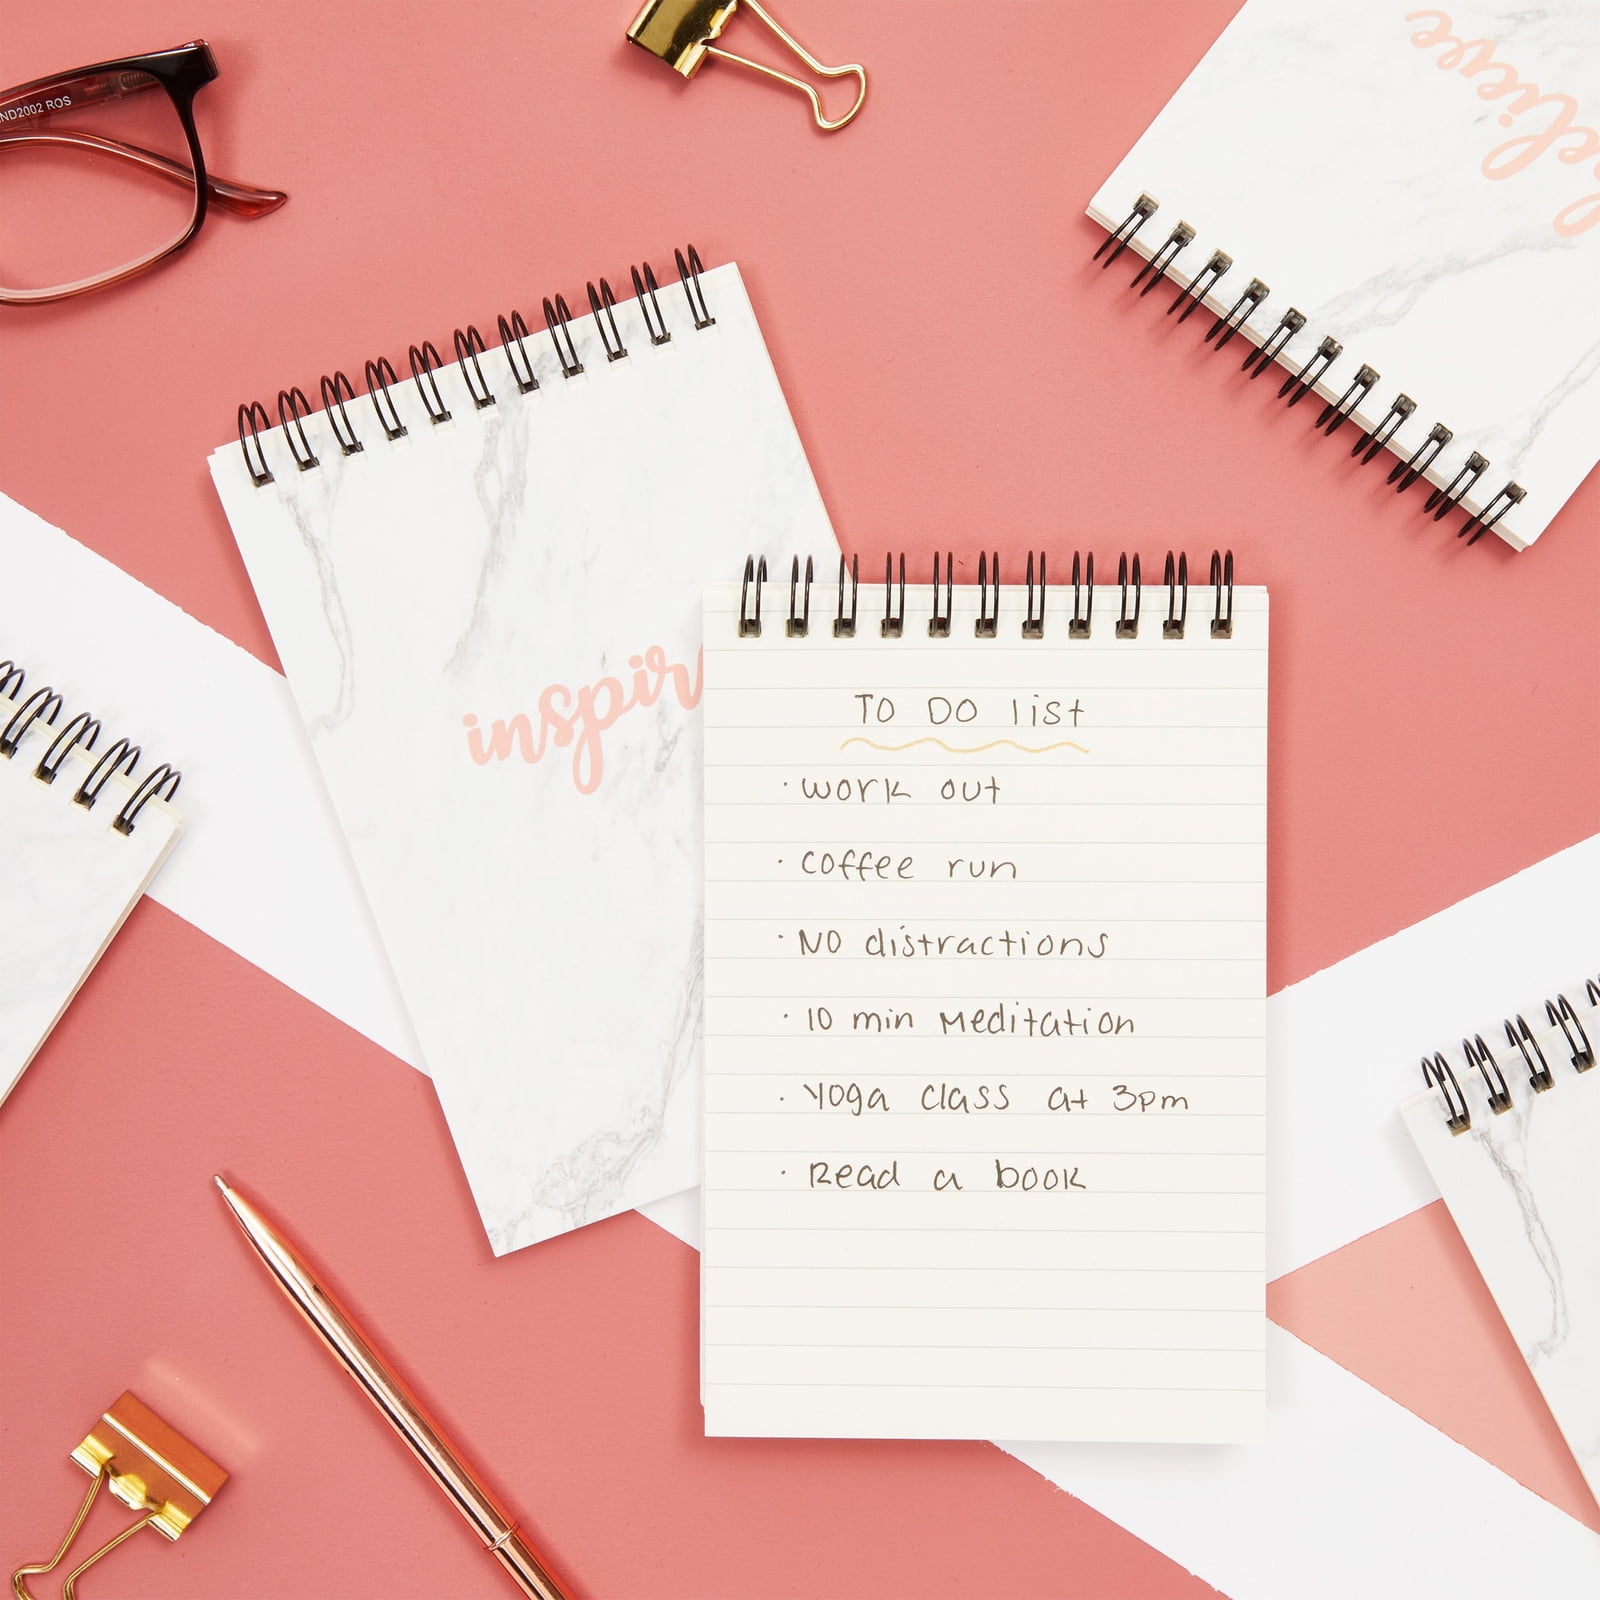 ND2002 ROS
elieve
inspir
TO DO list
· work out
· coffee run
· NO distractions
· 10 min Meditation
· Yoga class at 3pm
· Read a book